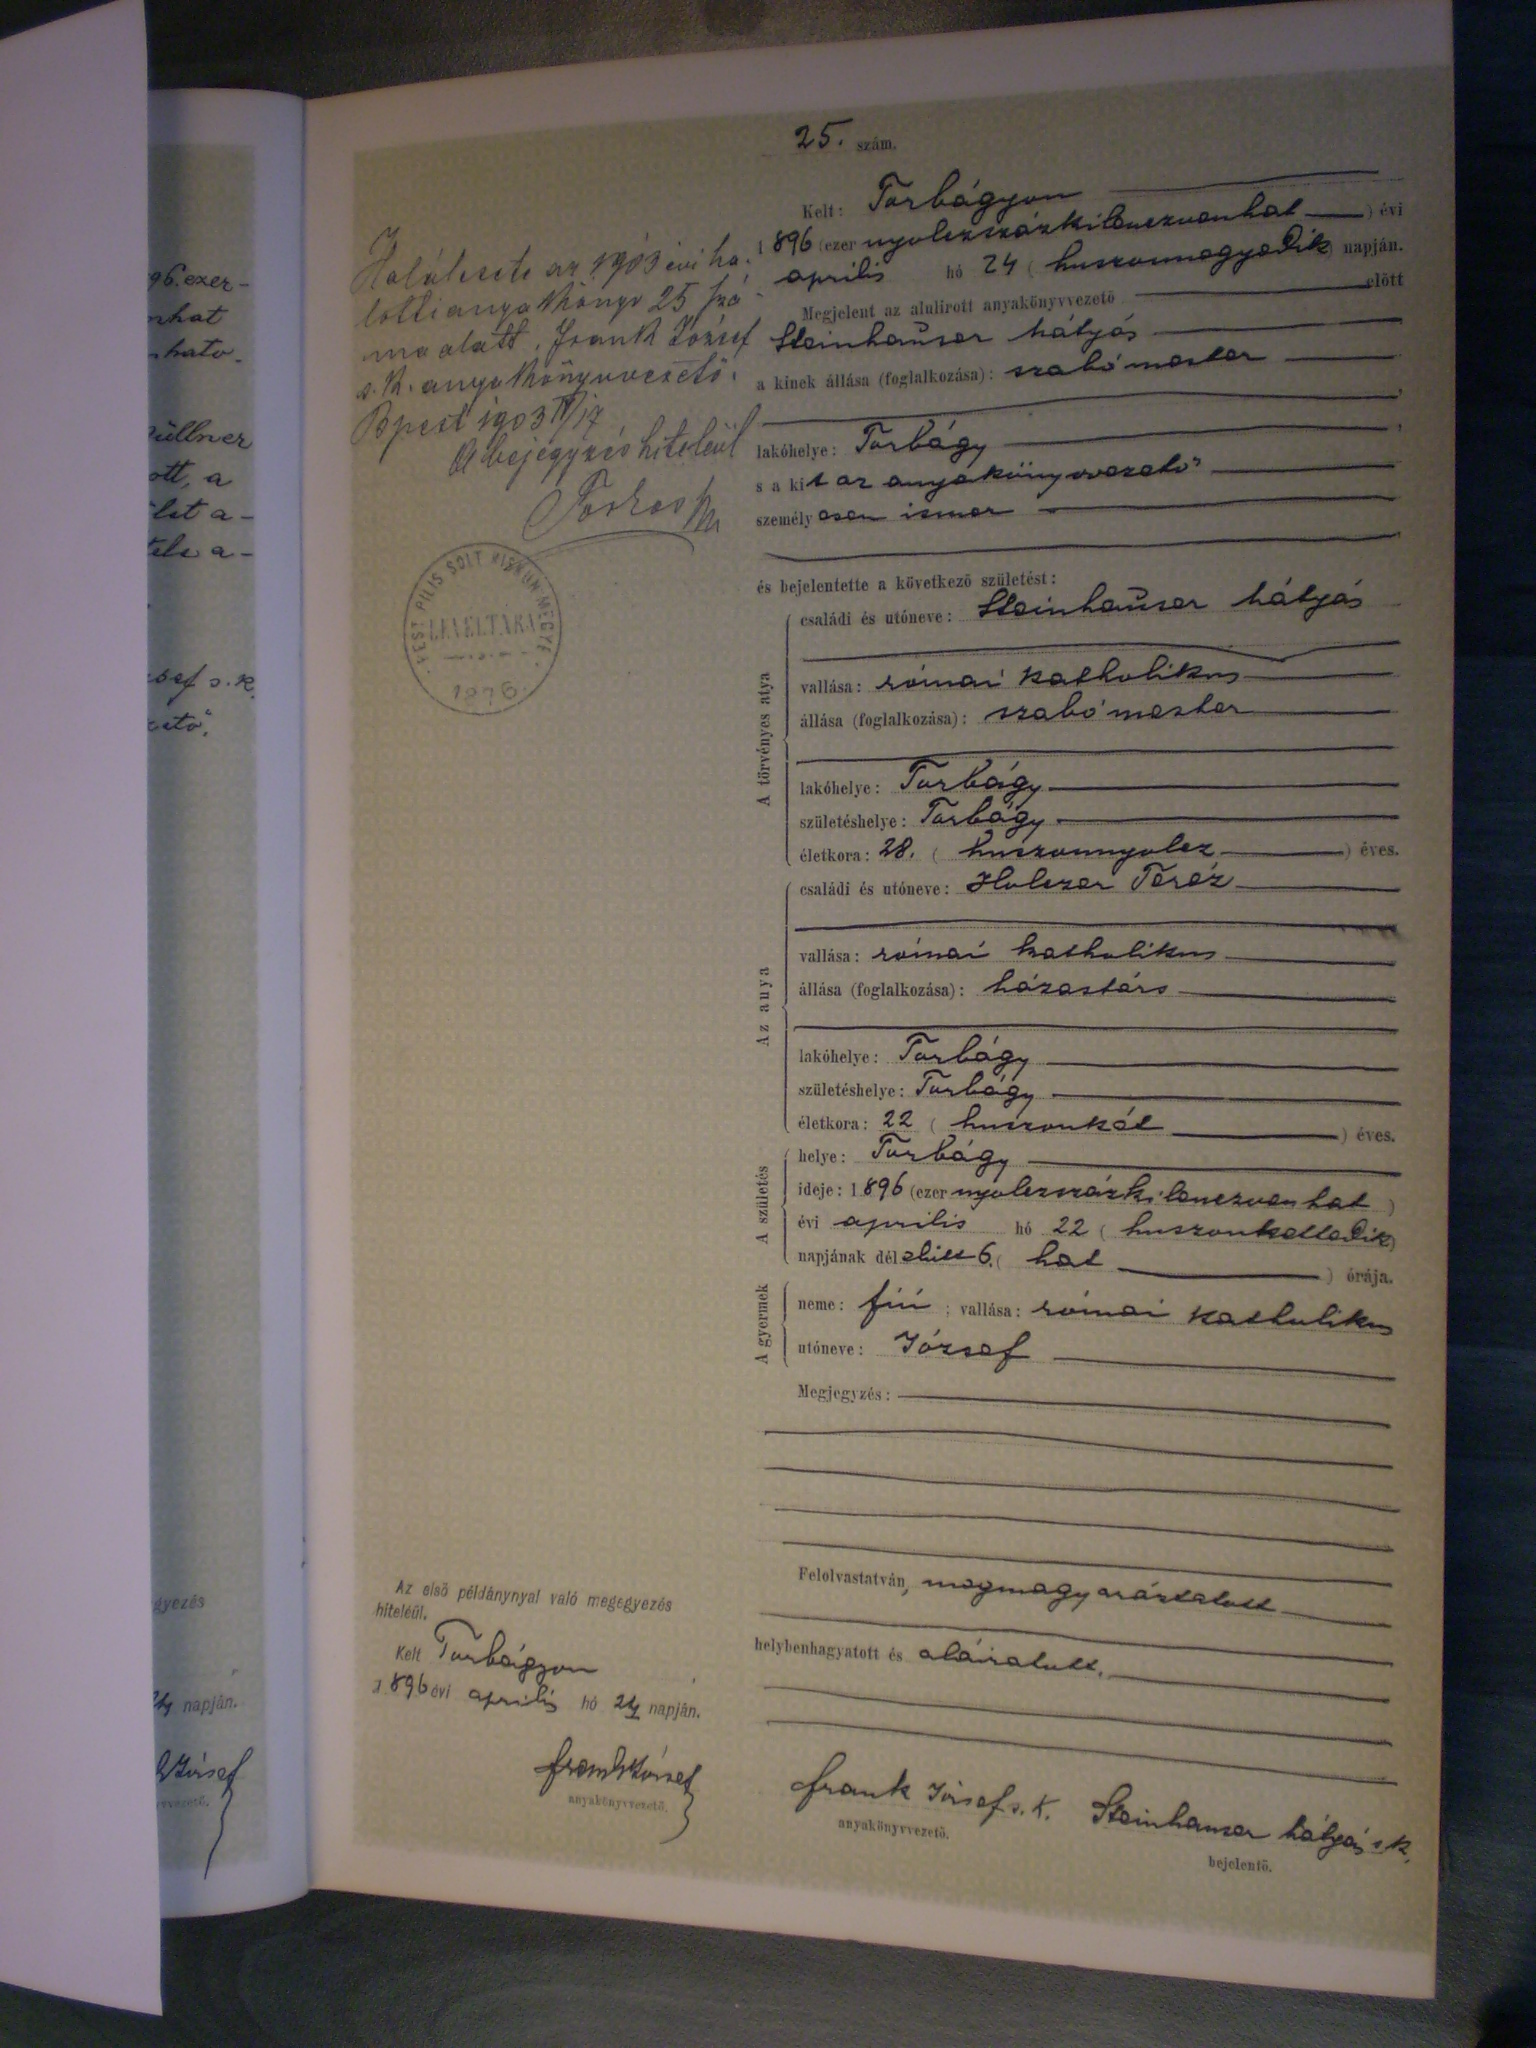 96. ezer-
nhat
hato-
üllner
ott, a
let a-
tele a-
sef s. k.
gyezés
24 napján.
József
25. szám.
Kelt: Torbágyon
1896 (ezer nyolczszázkilenczvenhat) évi
április hó 24 (huszonnegyedik) napján.
Megjelent az alulirott anyakönyvvezető előtt
Steinhauser Mátyás
a kinek állása (foglalkozása): szabó mester
lakóhelye: Torbágy
s a kit az anyakönyvvezető
személyesen ismer
és bejelentette a következő születést:
A törvényes atya
családi és utóneve: Steinhauser Mátyás
vallása: római katholikus
állása (foglalkozása): szabó mester
lakóhelye: Torbágy
születéshelye: Torbágy
életkora: 28. (huszonnyolcz) éves.
Az anya
családi és utóneve: Holczer Teréz
vallása: római katholikus
állása (foglalkozása): házastárs
lakóhelye: Torbágy
születéshelye: Torbágy
életkora: 22 (huszonkét) éves.
A születés
helye: Torbágy
ideje: 1896 (ezer nyolczszázkilenczvenhat)
évi április hó 22 (huszonkettedik)
napjának délelőtt 6. (hat) órája.
A gyermek
neme: fiú; vallása: római katholikus
utóneve: József
Megjegyzés:
Felolvastatván, megmagyaráztatott
helybenhagyatott és aláiratott.
Frank József s. k. Steinhauser Mátyás s. k.
anyakönyvvezető. bejelentő.
Halálesete az 1903 évi ha-
lotti anyakönyv 25 szá-
ma alatt. Frank József
s. k. anyakönyvvezető.
Bpest 1903 IV/17
A bejegyzés hiteléül
PEST PILIS SOLT KISKUN MEGYE
LEVÉLTÁRA
1876
Az első példánynyal való megegyezés
hiteléül.
Kelt Torbágyon
1896 évi április hó 24 napján.
Frank József
anyakönyvvezető.